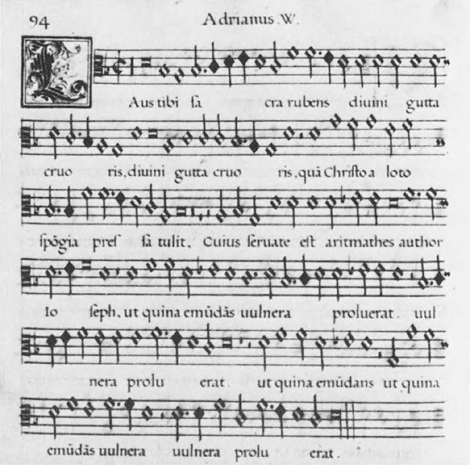 94 Adrianus .W.
LAus tibi sa cra rubens diuini gutta
cruo ris, diuini gutta cruo ris, quā Chriſto a loto
ſpōgia preſ ſā tulit. Cuius ſeruate eſt aritmathes author
Io ſeph, ut quina emūdās uulnera proluerat. uul
nera prolu erat. ut quina emūdans ut quina
emūdās uulnera uulnera prolu erat.